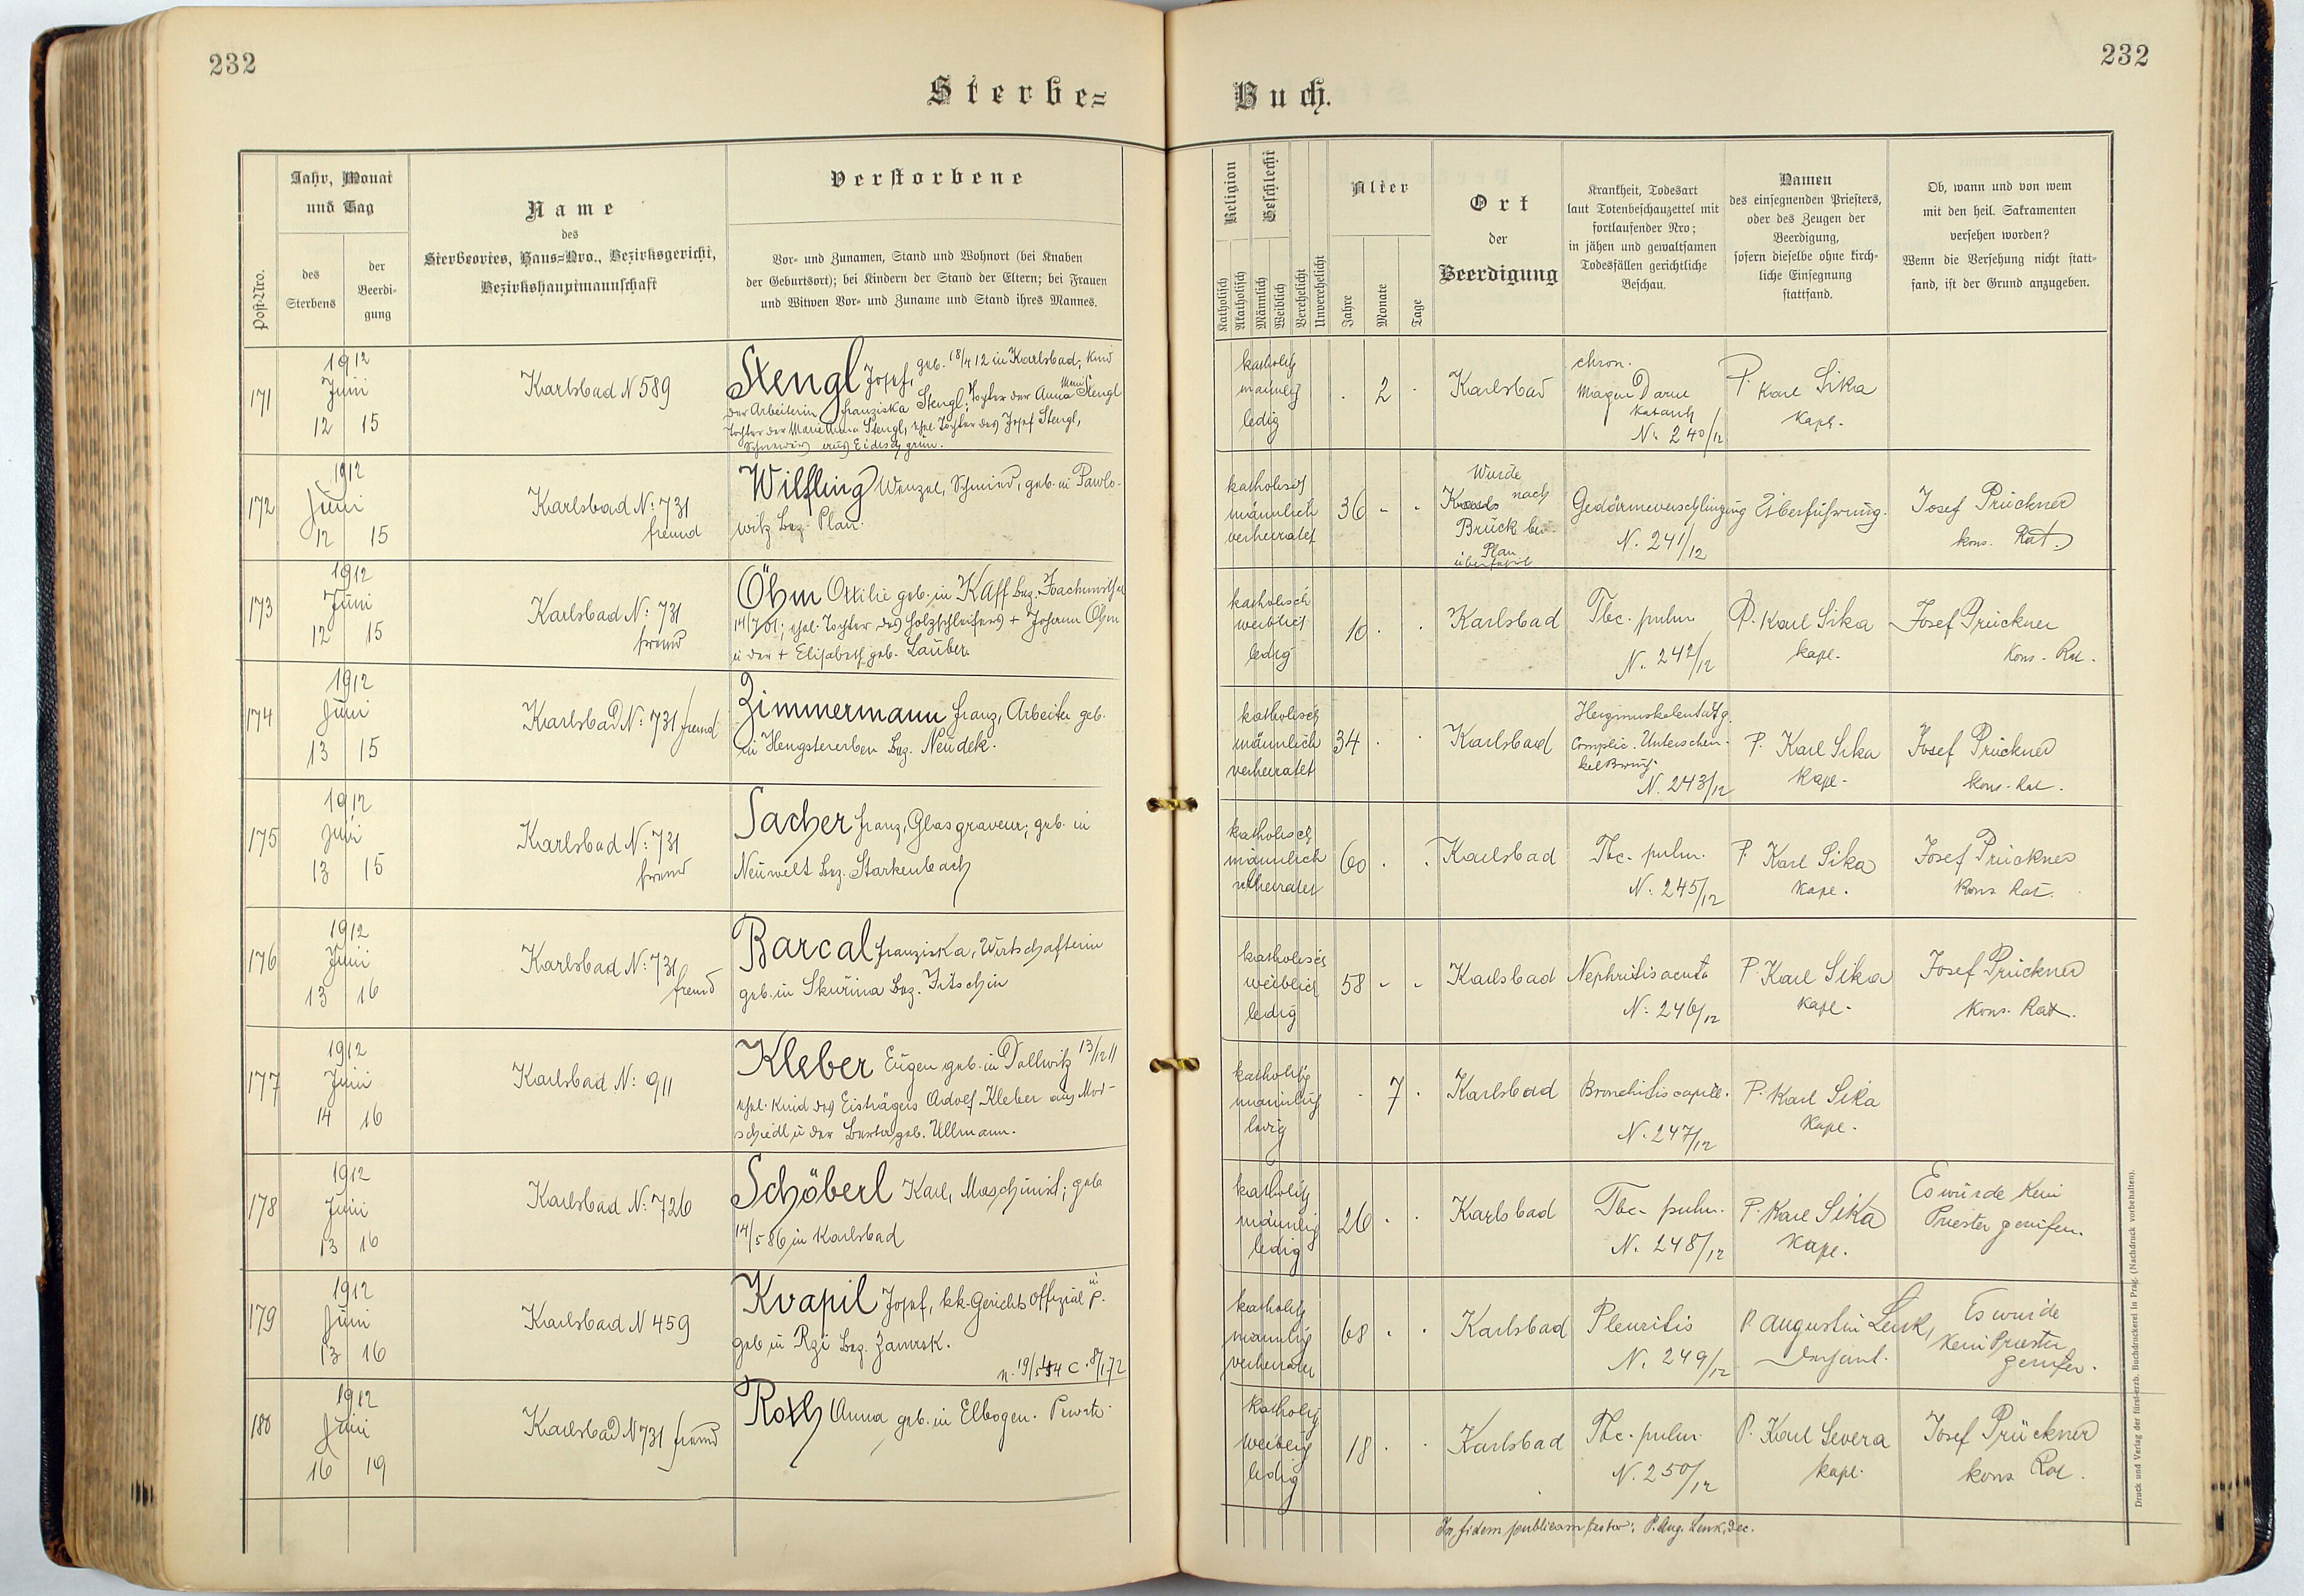 232
232
Sterbe=
Buch.
Post-Nro.
Jahr, Monat
und Tag
des
Sterbens
der
Beerdi-
gung
Name
des
Sterbeortes, Haus=Nro., Bezirksgericht,
Bezirkshauptmannschaft
Verstorbene
Vor- und Zunamen, Stand und Wohnort (bei Knaben
der Geburtsort); bei Kindern der Stand der Eltern; bei Frauen
und Witwen Vor- und Zuname und Stand ihres Mannes.
Religion
Katholisch
Akatholisch
Geschlecht
Männlich
Weiblich
Verehelicht
Unverehelicht
Alter
Jahre
Monate
Tage
Ort
der
Beerdigung
Krankheit, Todesart
laut Totenbeschauzettel mit
fortlaufender Nro;
in jähen und gewaltsamen
Todesfällen gerichtliche
Beschau.
Namen
des einsegnenden Priesters,
oder des Zeugen der
Beerdigung,
sofern dieselbe ohne kirch-
liche Einsegnung
stattfand.
Ob, wann und von wem
mit den heil. Sakramenten
versehen worden?
Wenn die Versehung nicht statt-
fand, ist der Grund anzugeben.
171
1912
Juni
12 15
Karlsbad N 589
Stengl Josef, geb. 18/4 12 in Karlsbad, Kind
der Arbeiterin Franziska Stengl; Tochter der Anna Stengl
Tochter der Maria Anna Stengl, ehel. Tochter des Josef Stengl,
aus Eidesgrün.
katholisch
männlich
ledig
. 2 .
Karlsbad
chron.
Magen Darm
katarrh
N. 240/12
P. Karl Sika
Kapl.
172
1912
Juni
12 15
Karlsbad N: 731
fremd
Wilfling Wenzel, Schmied, geb. in Pawlo-
witz Bez. Plan.
katholisch
männlich
verheiratet
36 - -
Wurde
nach
Bruck bei
Plan
überführt
Gedärmeverschlingung
N. 241/12
Überführung.
Josef Prückner
kons. Rat.
173
1912
Juni
12 15
Karlsbad N: 731
fremd
Öhm Ottilie geb. in Kaff Bez. Joachimsthal
14/7 01; ehel. Tochter des Holzschleifers + Johann Öhm
u der + Elisabeth geb. Lauber.
katholisch
weiblich
ledig
10 . .
Karlsbad
Tbc. pulm.
N. 242/12
P. Karl Sika
Kapl.
Josef Prückner
Kons. Rat.
174
1912
Juni
13 15
Karlsbad N: 731 fremd
Zimmermann Franz, Arbeiter geb.
in Hengstererben Bez. Neudek.
katholisch
männlich
verheiratet
34 . .
Karlsbad
Complic. Unterschen-
kelbruch.
N. 243/12
P. Karl Sika
Kapl.
Josef Prückner
kons. Rat.
175
1912
Juni
13 15
Karlsbad N: 731
fremd
Sacher Franz, Glasgraveur, geb. in
Neuwelt Bez. Starkenbach
katholisch
männlich
verheiratet
60 . .
Karlsbad
Tbc. pulm.
N. 245/12
P. Karl Sika
Kapl.
Josef Prückner
Kons. Rat.
176
1912
Juni
13 16
Karlsbad N: 731
fremd
Barcal Franziska, Wirtschafterin
geb. in Skuřina Bez. Jitschin
katholisch
weiblich
ledig
58 - -
Karlsbad
Nephritis acuta
N. 246/12
P. Karl Sika
Kapl.
Josef Prückner
Kons. Rat.
177
1912
Juni
14 16
Karlsbad N: 911
Kleber Eugen geb. in Dallwitz 13/12 11
ehel. Kind des Eisträgers Adolf Kleber aus
u der Berta geb. Ullmann.
katholisch
männlich
ledig
. 7 .
Karlsbad
Bronchitis capill.
N. 247/12
P. Karl Sika
Kapl.
178
1912
Juni
13 16
Karlsbad N: 726
Schöberl Karl, Maschinist; geb
14/5 86 in Karlsbad
katholisch
männlich
ledig
26 . .
Karlsbad
Tbc. pulm.
N. 248/12
P. Karl Sika
Kapl.
Es wurde kein
Priester gerufen.
179
1912
Juni
13 16
Karlsbad N 459
Kvapil Josef, kk. Gerichts Offizial i P.
geb in Rzi Bez. Zamrsk.
katholisch
männlich
verheiratet
68 . .
Karlsbad
Pleuritis
N. 249/12
P. Augustin Lenk,
Dechant.
Es wurde
kein Priester
gerufen.
180
1912
Juni
16 19
Karlsbad N 731 fremd
Roth Anna geb. in Elbogen. Private.
katholisch
weiblich
ledig
18 . .
Karlsbad
Tbc. pulm.
N. 250/12
P. Karl Severa
kapl.
Josef Prückner
kons Rat.
In fidem publicam testor: P. Aug. Lenk, Dec.
Druck und Verlag der fürst-erzb. Buchdruckerei in Prag. (Nachdruck vorbehalten).